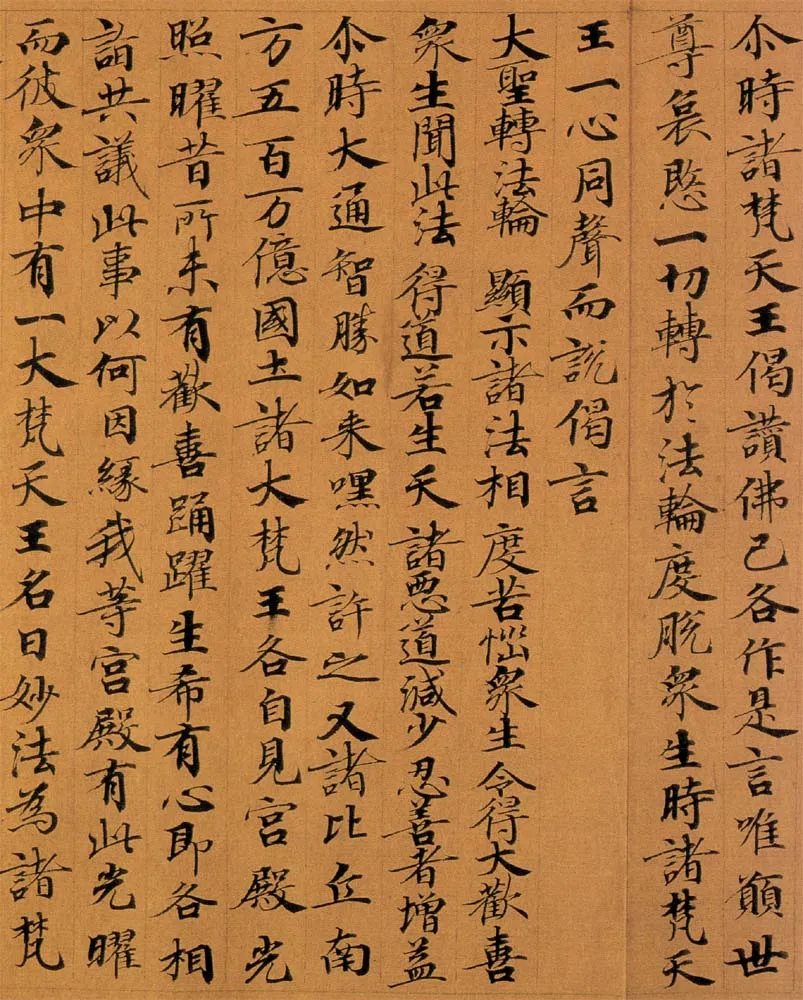 尒時諸梵天王偈讚佛已各作是言唯願世
尊哀愍一切轉於法輪度脫衆生時諸梵天
王一心同聲而說偈言
大聖轉法輪 顯示諸法相 度苦惱衆生 令得大歡喜
衆生聞此法 得道若生天 諸惡道減少 忍善者增益
尒時大通智勝如来嘿然許之又諸比丘南
方五百万億國土諸大梵王各自見宫殿光
照曜昔所未有歡喜踊躍生希有心即各相
詣共議此事以何因緣我等宫殿有此光曜
而彼衆中有一大梵天王名曰妙法為諸梵